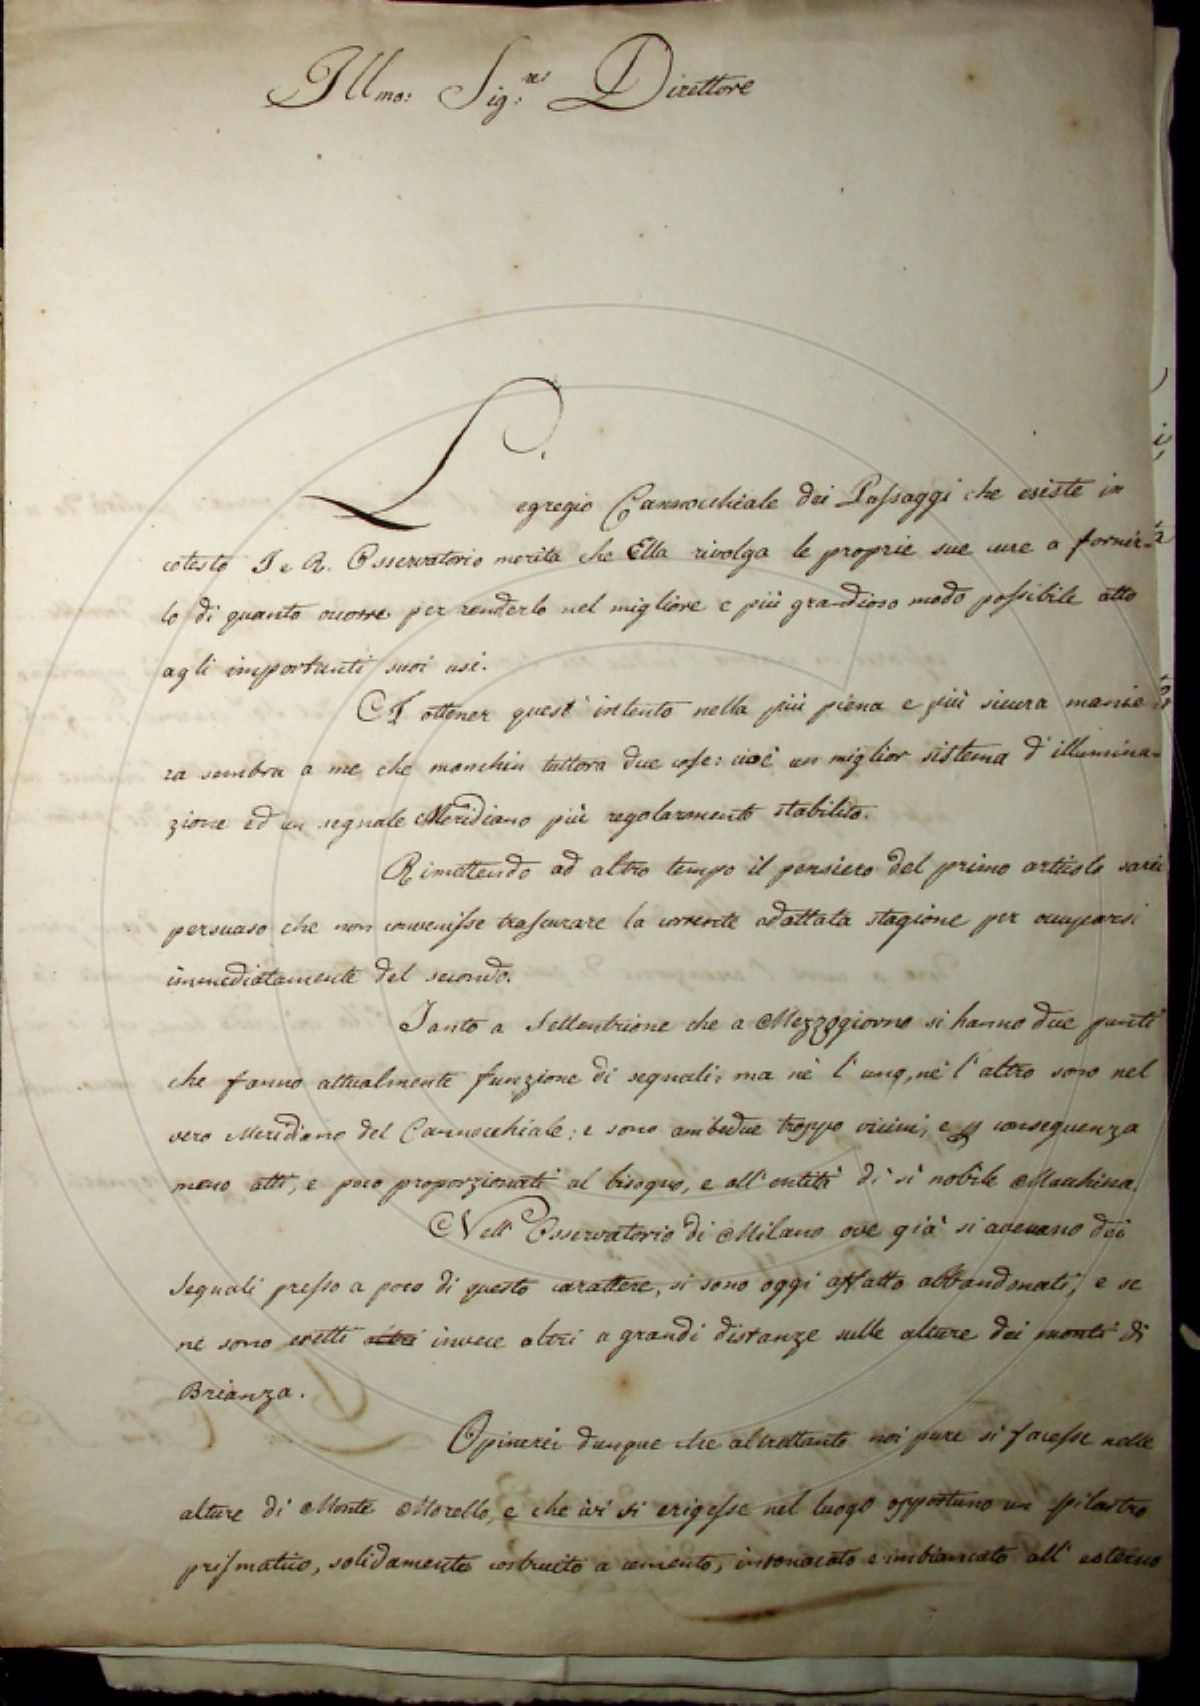 Illmo: Sig:re Direttore
L' egregio Cannocchiale dei Passaggi che esiste in
cotesto I e R. Osservatorio merita che Ella rivolga le proprie sue cure a fornir=
lo di quanto ocorre per renderlo nel migliore e più grandioso modo possibile atto
agli importanti suoi usi.
Ad ottener quest' intento nella più piena e più sicura manie=
ra sembra a me che manchin tuttora due cose: cioè un miglior sistema d' illumina=
zione ed un segnale Meridiano più regolarmente stabilito.
Rimettendo ad altro tempo il pensiero del primo articolo sarei
persuaso che non convenisse trascurare la corrente adattata stagione per occuparsi
immediatamente del secondo.
Tanto a Settentrione che a Mezzogiorno si hanno due punti
che fanno attualmente funzione di segnali; ma nè l' uno, nè l' altro sono nel
vero Meridiano del Cannocchiale; e sono ambedue troppo vicini, e p conseguenza
meno atti, e poco proporzionati al bisogno, e all' entità di sì nobile Macchina.
Nell' Osservatorio di Milano ove già si avevano dei
Segnali presso a poco di questo carattere, si sono oggi affatto abbandonati, e se
ne sono eretti altri invece altri a grandi distanze sulle alture dei monti di
Brianza.
Opinerei dunque che altrettanto noi pure si facesse nelle
alture di Monte Morello, e che ivi si erigesse nel luogo opportuno un pilastro
prismatico, solidamente costruito a cemento, intonacato e imbiancato all' esterno